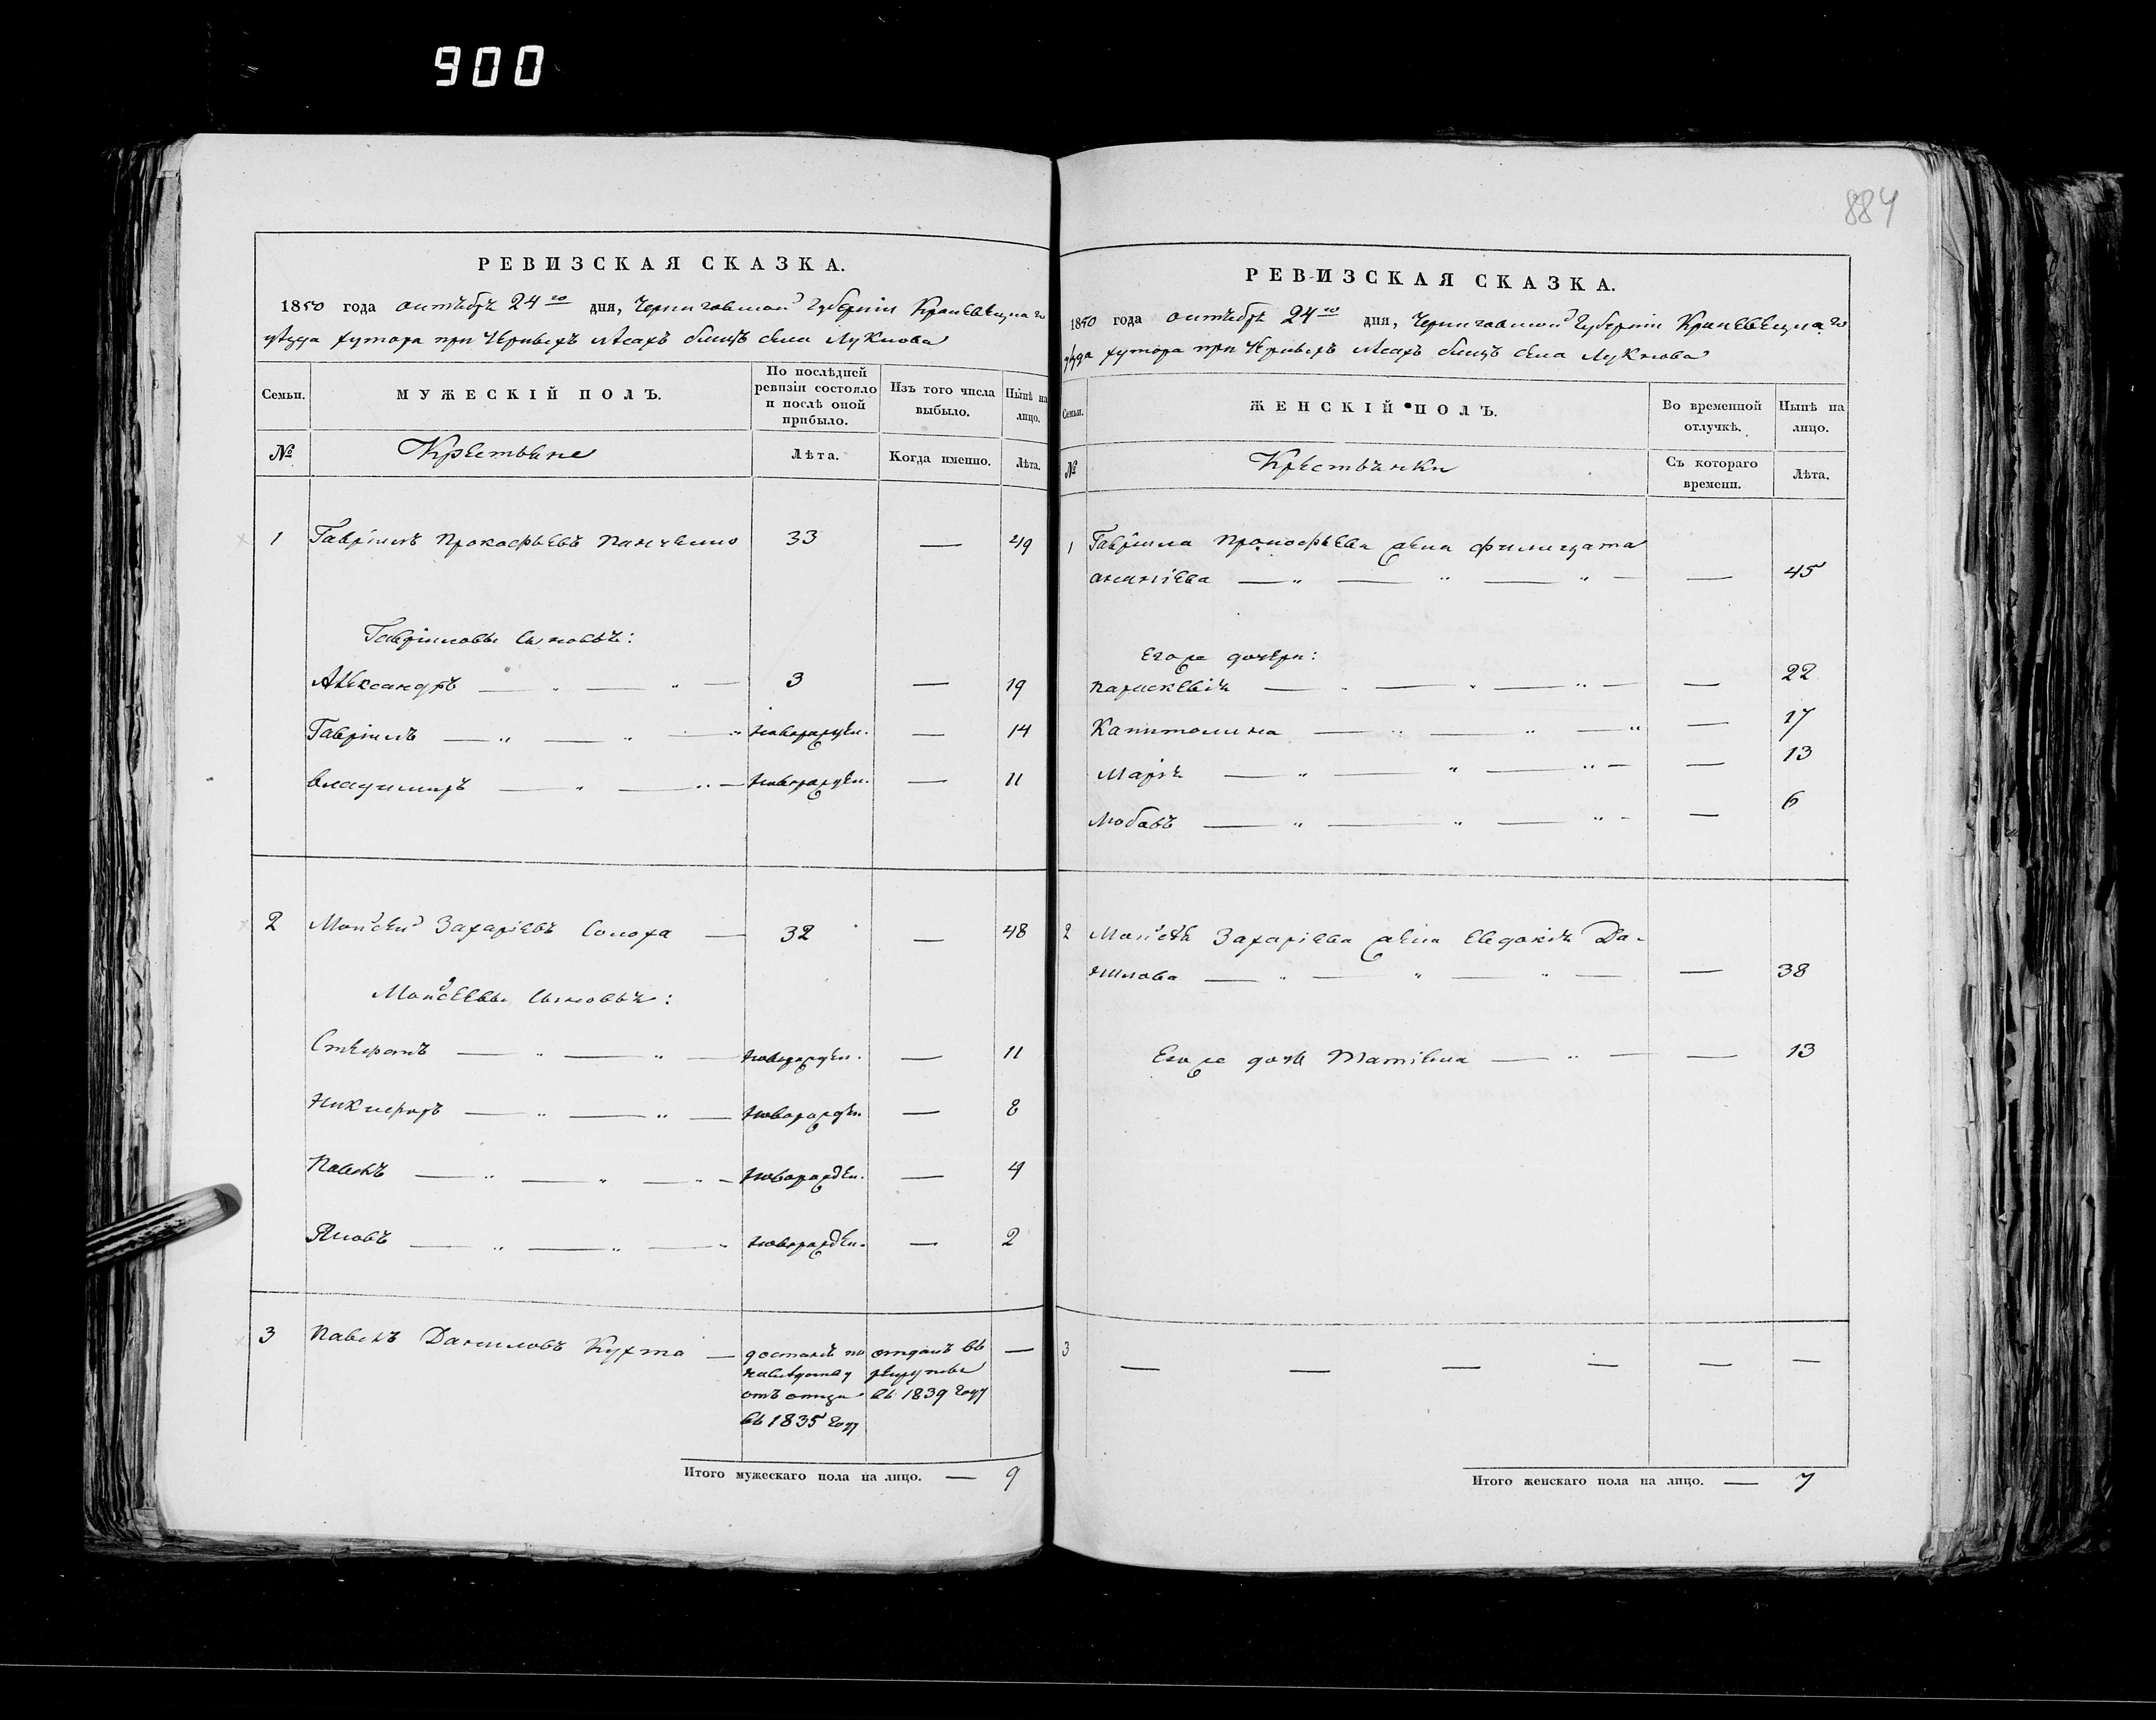 900
884
РЕВИЗСКАЯ СКАЗКА.
1850 года октября 24го дня, Черниговской Губерніи Кролевецкаго
уѣзда хутора при Черныхъ Лѣсахъ близъ села Лукнова
Семьи. МУЖЕСКІЙ ПОЛЪ. По послѣдней ревизіи состояло и послѣ оной прибыло. Изъ того числа выбыло. Нынѣ на лицо.
№ Крестьяне Лѣта. Когда именно. Лѣта.
1 Гавріилъ Прокофьевъ Панченко 33 — 49
Гавріиловы сыновья:
Александръ — " — " — 3 — 19
Гавріилъ — " — " — " новорожден. — 14
Владимиръ — " — " — новорожден. — 11
2 Мойсей Захаріевъ Солоха — 32 — 48
Мойсеевы сыновья:
Стефанъ — " — " — новорожден. — 11
Никифоръ — " — " — новорожден. — 8
Павелъ — " — " — " — новорожден. — 4
Яковъ — " — " — " новорожден. — 2
3 Павелъ Даниловъ Кухта — досталъ по отданъ въ —
наслѣдству рекруты
отъ отца въ 1839 году
въ 1835 году
Итого мужескаго пола на лицо. — 9
РЕВИЗСКАЯ СКАЗКА.
1850 года октября 24го дня, Черниговской Губерніи Кролевецкаго
уѣзда хутора при Черныхъ Лѣсахъ близъ села Лукнова
Семьи. ЖЕНСКІЙ ПОЛЪ. Во временной отлучкѣ. Нынѣ на лицо.
№ Крестьянки Съ котораго времени. Лѣта.
1 Гавріила Прокофьева жена Филицата
Ананіева — " — " — " — — 45
Его же дочери:
Параскевія — " — " — " — — 22
Капитолина — " — " — " — 17
Марія — " — " — " — — 13
Любовь — " — " — " - — 6
2 Мойсея Захаріева жена Евдокія Да-
нилова — " — " — " — — 38
Его же дочь Татіана — " — — 13
3 — — — — — —
Итого женскаго пола на лицо. — 7